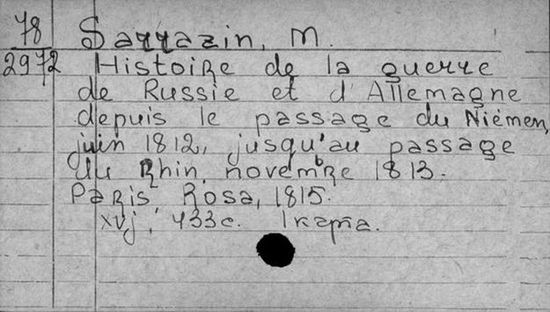 78 Sarrazin, M.
2972 Histoire de la guerre
de Russie et d'Allemagne
depuis le passage du Niémen,
juin 1812, jusqu'au passage
du Rhin, novembre 1813.
Paris, Rosa, 1815.
xvj, 433c. 1 карта.